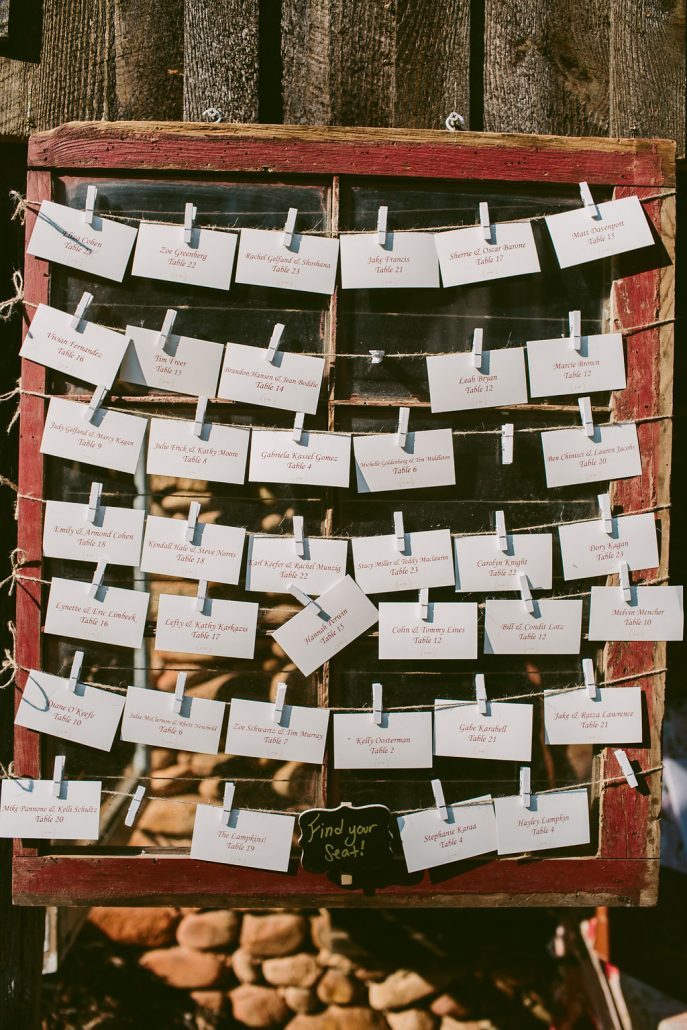 Elisa Cohen
Table 23
Zoe Greenberg
Table 22
Rachel Gelfand & Shoshana
Table 23
Jake Francis
Table 21
Sherrie & Oscar Barone
Table 17
Matt Davenport
Table 15
Vivian Fernandez
Table 16
Tim Freer
Table 15
Brandon Hansen & Jean Boddie
Table 14
Leah Bryan
Table 12
Marcie Brown
Table 12
Judy Gelfand & Marcy Kagan
Table 9
Julie Frick & Kathy Moore
Table 8
Gabriela Kassel Gomez
Table 4
Michelle Goldenberg & Tim Middleton
Table 6
Ben Chinisci & Lauren Jacobs
Table 20
Emily & Armond Cohen
Table 18
Kendall Hale & Steve Norris
Table 18
Karl Keefer & Rachel Munzig
Table 22
Stacy Miller & Teddy Maclaurin
Table 23
Carolyn Knight
Table 22
Dory Kagan
Table 23
Lynette & Eric Limbeek
Table 16
Lefty & Kathy Karkazis
Table 17
Hannah
Table 15
Colin & Tommy Lines
Table 12
Bill & Condit Lotz
Table 12
Melvin Mencher
Table 10
Diane O'Keefe
Table 10
Julia McClernon & Rhett Newbold
Table 6
Zoe Schwartz & Tim Murray
Table 7
Kelly Oosterman
Table 2
Gabe Karabell
Table 21
Jake & Raiza Lawrence
Table 21
Mike Pannone & Kelli Schultz
Table 20
The Lampkins!
Table 19
Find your
Seat!
Stephanie Karaa
Table 4
Hayley Lampkin
Table 4